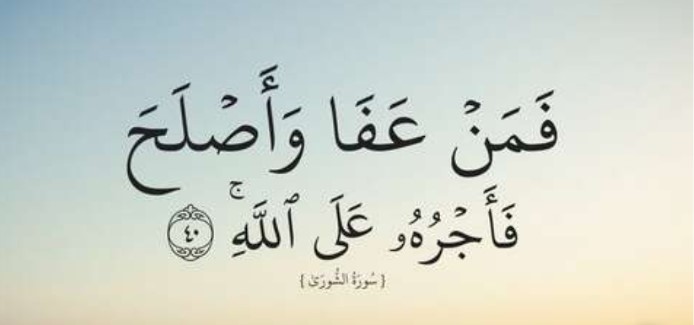 فَمَنْ عَفَا وَأَصْلَحَ
فَأَجْرُهُۥ عَلَى ٱللَّهِ ۚ ٤٠
{ سُورَةُ الشُّورَىٰ }